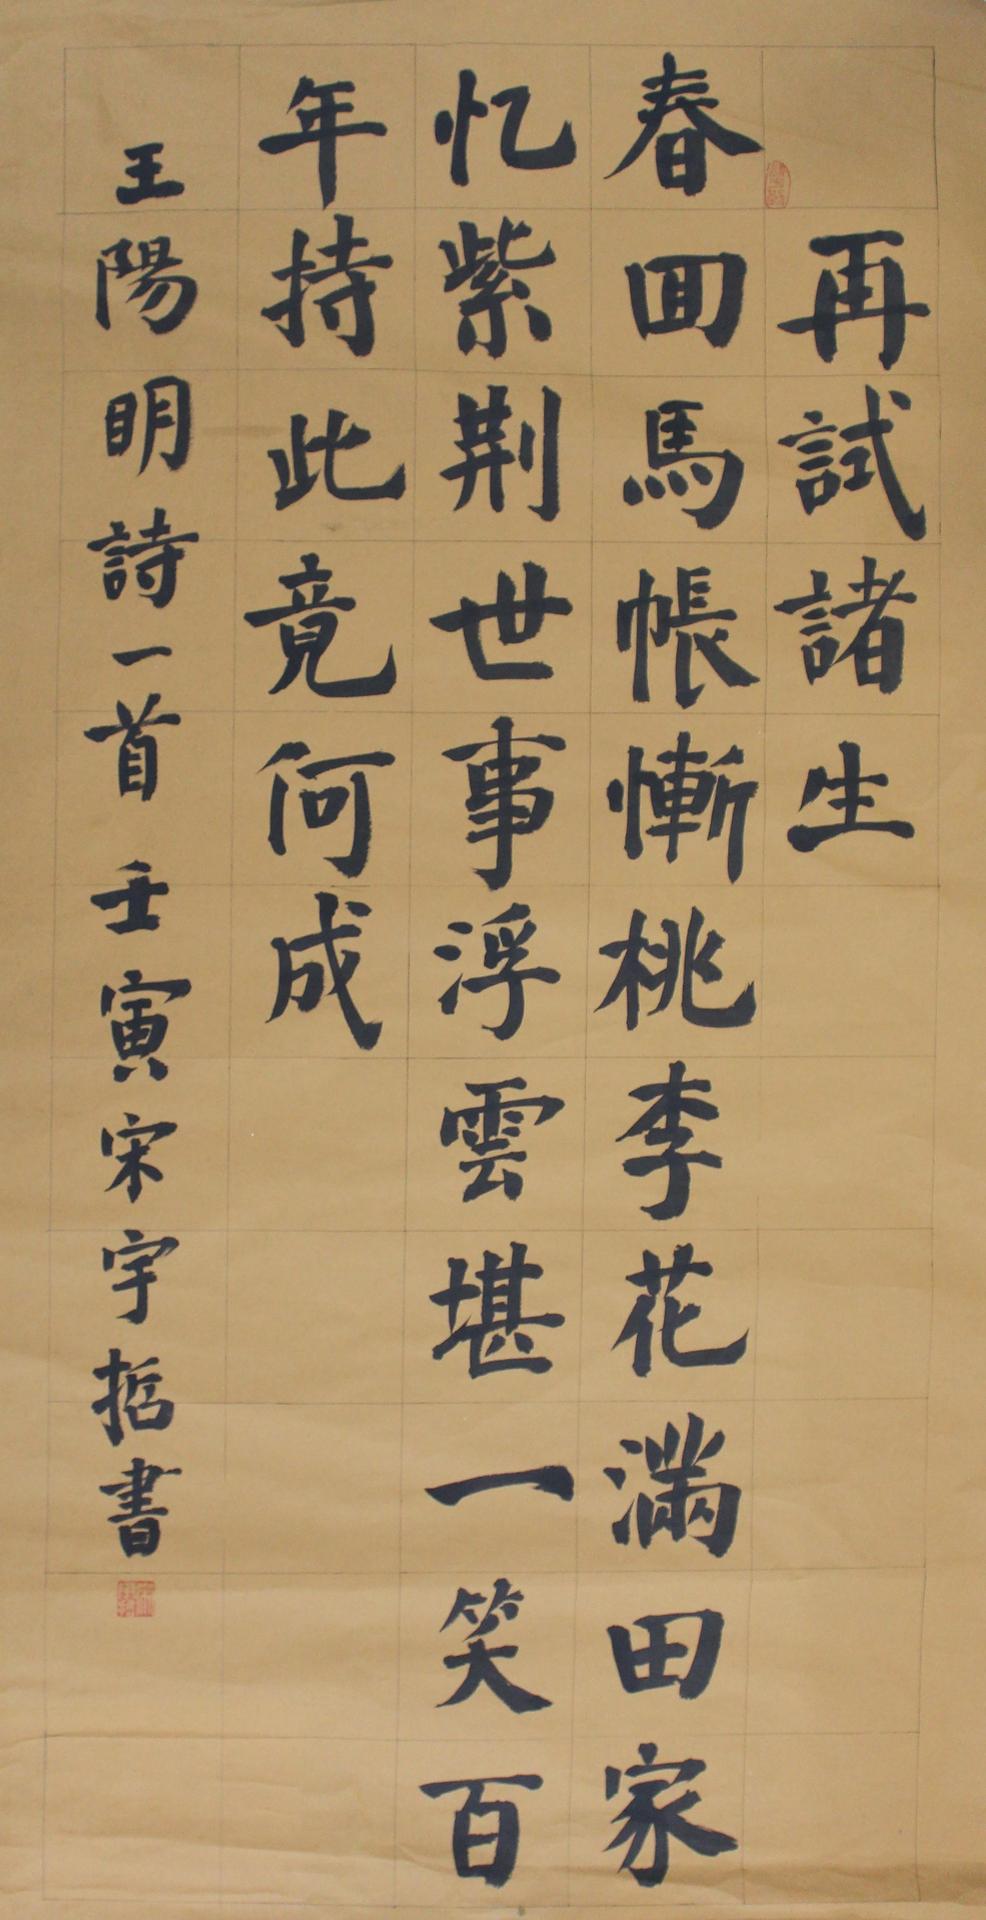 再試諸生
春回馬帳慚桃李花滿田家
忆紫荆世事浮雲堪一笑百
年持此竟何成
王陽明詩一首 壬寅宋宇哲書